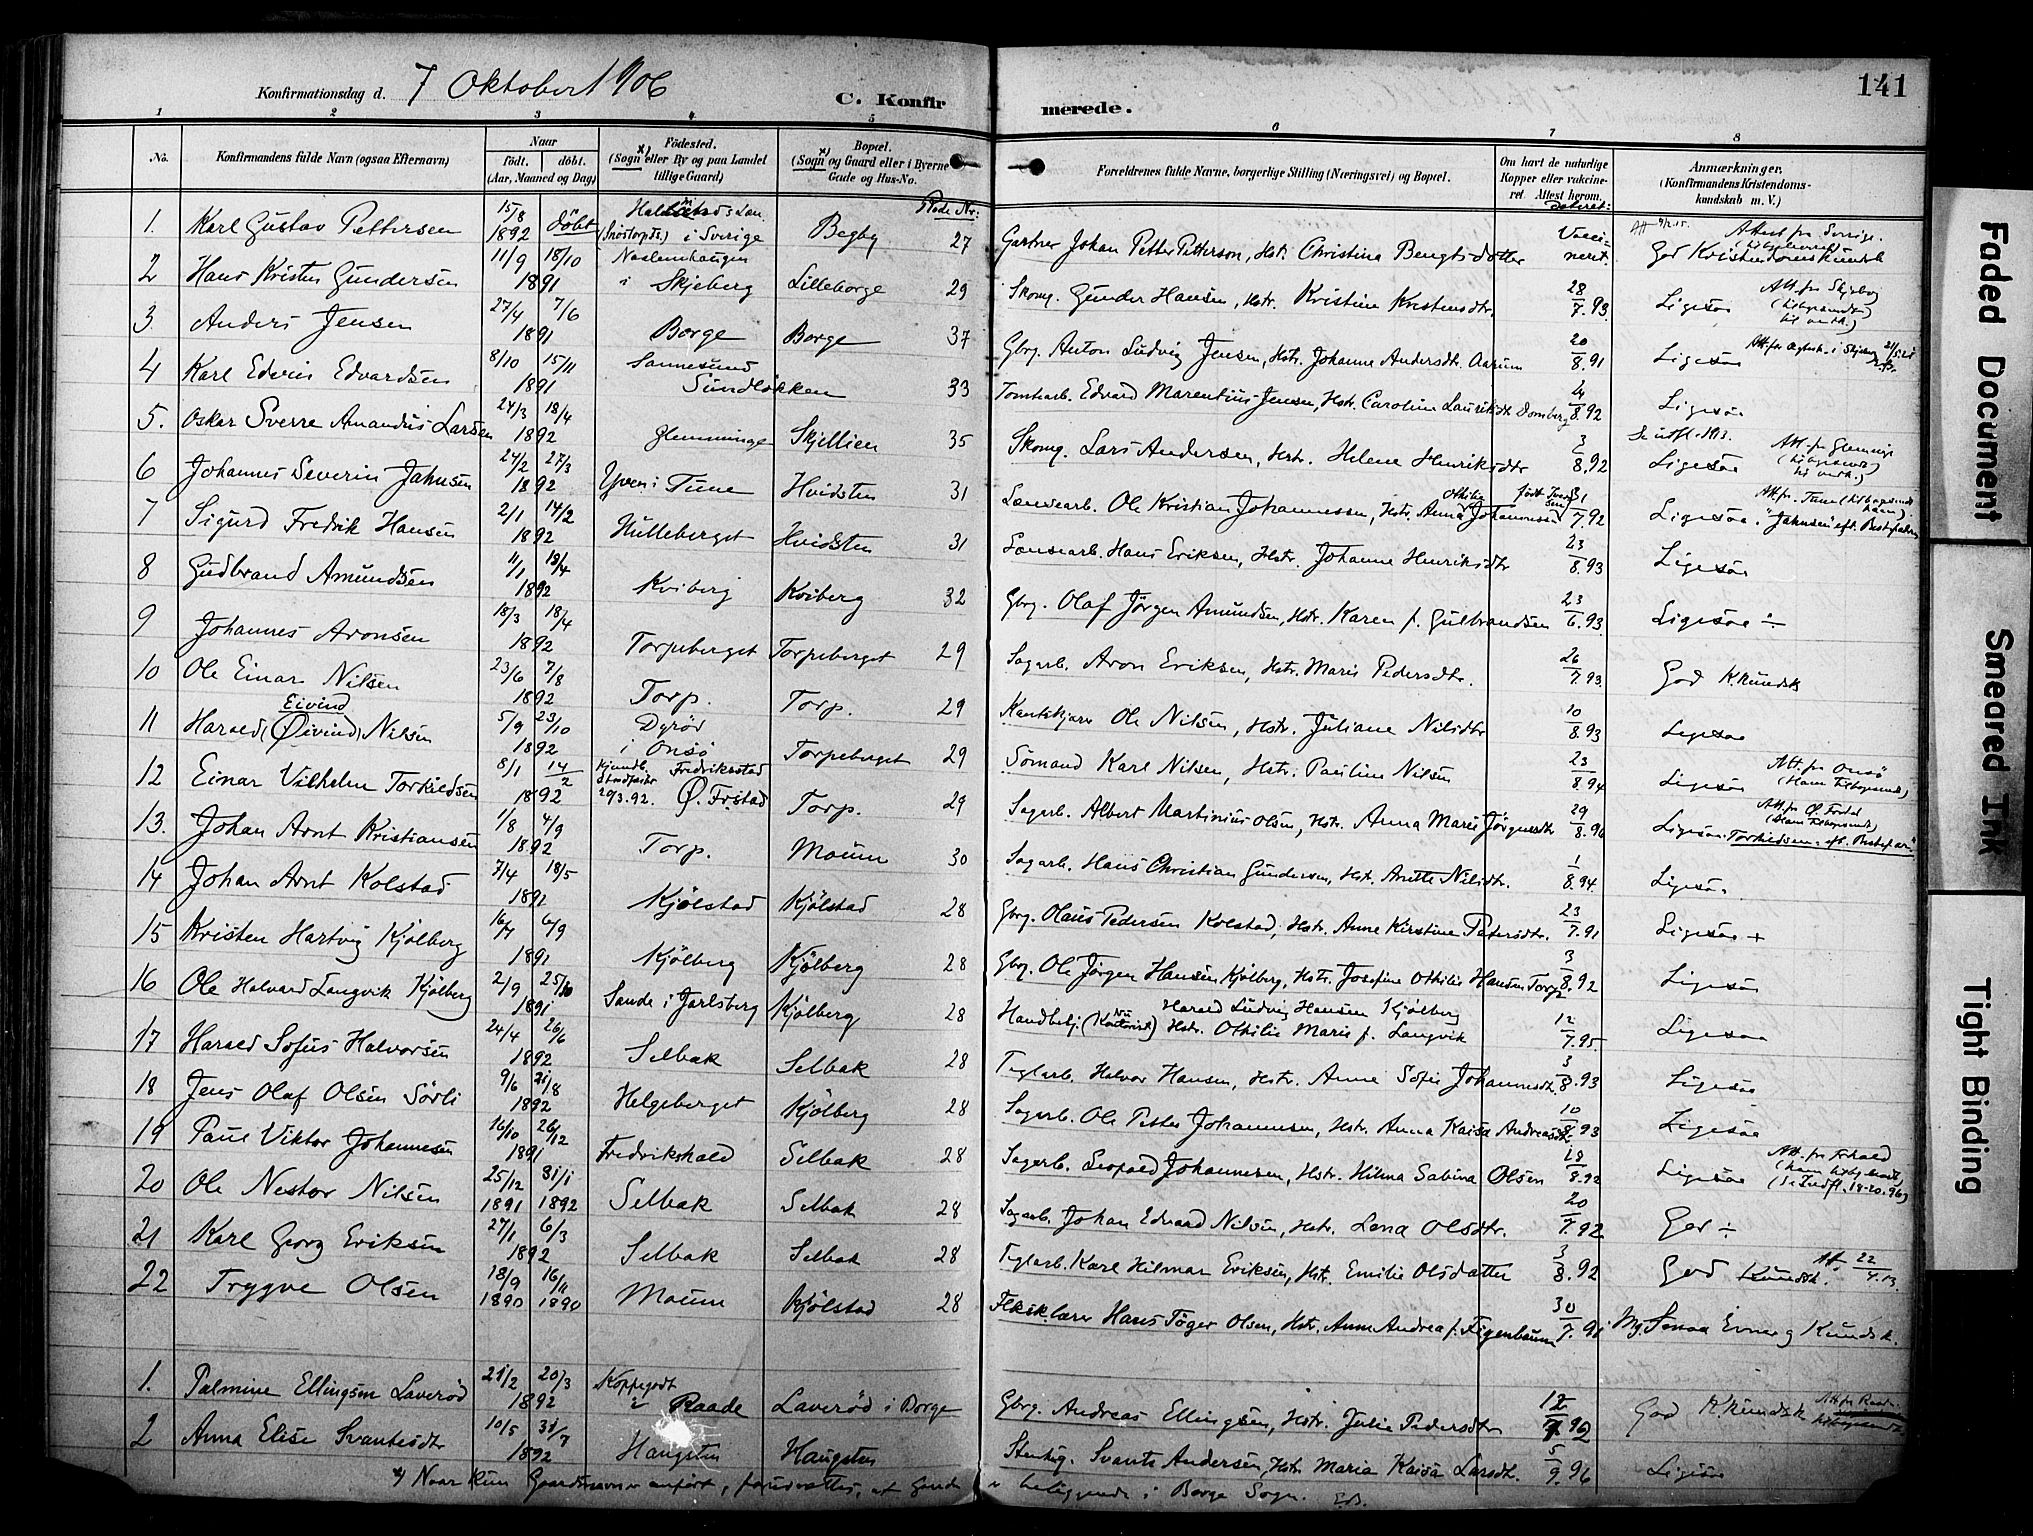 Konfirmationsdag d. 7 Oktober 1906
C. Konfirmerede.
141
1 2 3 4 5 6 7 8
No.
Konfirmandens fulde Navn (ogsaa Efternavn)
Naar
födt. döbt.
(Aar, Maaned og Dag)
Födested.
(Sogn eller By og paa Landet
tillige Gaard)
Bopæl.
(Sogn og Gaard eller i Byerne
Gade og Hus-No.
Forældrenes fulde Navne, borgerlige Stilling (Næringsvei) og Bopæl.
Om havt de naturlige
Kopper eller vakcine-
ret Attest herom.
dateret:
Anmærkninger.
(Konfirmandens Kristendoms-
kundskab m. V.)
Rode Nr:
1. Karl Gustav Pettersen 15/8 1892 döbt i Sverige Begby 27 Gartner Johan Petter Petterson, Hstr. Christina Bengtsdotter Vacci-nert. God Kristendomskundsk
Attest fra Sverige.
2 Hans Kristen Gundersen 11/9 18/10 1891 i Skjeberg Lilleborge 29 Skomg. Gunder Hansen, Hstr. Kristine Kristensdtr. 28/7.93. Ligesaa
Att. fra Skjeberg
3. Anders Jensen 27/4 7/6 1891 Borge Borge 37 Gbrg. Anton Ludvig Jensen, Hstr. Johanne Andersdt. Aarum 20/8.91 Ligesaa
4 Karl Edvin Edvardsen 8/10 15/11 1891 Sannesund Sundløkken 33 Tomtearb. Edvard Marentius Jensen, Hstr. Caroline Lauritsdt. Domberg 4/8.92 Ligesaa
5. Oskar Sverre Amandus Larsen 24/3 18/4 1892 Glemminge Skjellien 35 Skomg. Lars Andersen, Hstr. Helene Henriksdtr 2/8.92 Ligesaa
Se udfl. 1913.
Att. fra Glemminge
6 Johannes Severin Jahnsen 24/2 27/3 1892 Yven i Tune Hvidsten 31 Landsearb. Ole Kristian Johannessen, Hstr. Anna Othilie Johannessen 31/7.92 Ligesaa. "Jahnsen" eft. Bestefaderen
Att. fra Tune
7 Sigurd Fredrik Hansen 2/1 14/2 1892 Hulleberget Hvidsten 31 Hans Eriksen, Hstr. Johanne Henriksdtr 23/8.93 Ligesaa
8 Gudbrand Amundsen 11/1 18/4 1892 Kviberg Kviberg 32 Gbrg. Olaf Jörgen Amundsen, Hstr. Karen f. Gulbrandsen 23/6.93. Ligesaa ÷
9 Johannes Aronsen 18/3 18/4 1892 Torpeberget Torpeberget 29 Sagarb. Aron Eriksen, Hstr. Maris Pedersdtr. 26/7.93. God K.kundsk
10 Ole Einar Nilsen 23/6 7/8 1892 Torp. Torp. 29 Kantskjærer Ole Nilsen, Hstr. Juliane Nilsdtr 10/8.93 Ligesaa
Eivind
11 Harald (Øivind) Nilsen 5/9 23/10 1892 Dyröd i Onsö Torpeberget 29 Sömand Karl Nilsen, Hstr. Pauline Nilsen 23/8.94 Ligesaa
Att. fra Onsö
12 Einar Vilhelm Torkildsen 8/1 14/2 1892 Fredriksstad 29.3.92. Ø. Fr.stad Torp. 29 Sagarb. Albert Martinius Olsen, Hstr. Anna Maris Jörgensdtr 29/8.96 Ligesaa. Torkildsen eft. Bestefar
13. Johan Arnt Kristiansen 1/8 4/9 1892 Torp. Moum 30 Sagarb. Hans Christian Gundersen, Hstr. Anette Nilsdtr. 1/8.94. Ligesaa
14 Johan Arnt Kolstad 7/4 18/5 1891 Kjölstad Kjölstad 28 Gbrg. Olaus Pedersen Kolstad, Hstr. Anne Kirstine Petersdtr. 23/7.91 Ligesaa +
15 Kristen Hartvig Kjölberg 16/7 6/9 1891 Kjölberg Kjölberg 28 Gbrg. Ole Jörgen Hansen Kjölberg, Hstr. Josefine Othilie Hansen Torp 3/8.92 Ligesaa
16 Ole Halvard Langvik Kjölberg 2/9 25/10 1891 Sande i Jarlsberg Kjölberg 28 Handbetj. (Nu Kontorist) Harald Ludvig Hansen Kjölberg Hstr. Othilie Marie f. Langvik 12/7.95. Ligesaa
17 Harald Sofus Halvorsen 24/4 26/6 1892 Selbak Selbak 28 Teglarb. Halvor Hansen, Hstr. Anne Sofie Johannesdt. 3/8.93 Ligesaa
18 Jens Olaf Olsen Sörli 9/6 21/8 1892 Helgeberget Kjölberg 28 Sagarb. Ole Petter Johannesen, Hstr. Anna Kaisa Andreasdt. 10/8.93 Ligesaa
19 Paul Viktor Johannesen 16/10 26/12 1891 Fredrikshald Selbak 28 Sagarb. Leopold Johannesen, Hstr. Hilma Sabina Olsen 18/8.92 Ligesaa
Att. fra Fr.hald
20 Ole Nestor Nilsen 25/12 1891 31/1 1892 Selbak Selbak 28 Sagarb. Johan Edvard Nilsen, Hstr. Lena Olsdtr. 20/7.92 God ÷
21 Karl Georg Eriksen 27/1 6/3 1892 Selbak Selbak 28 Teglarb. Karl Hilmar Eriksen, Hstr. Emilie Olsdatter 3/8.92 God Kundsk.
Att. 22/4.13.
22 Trygve Olsen 18/9 1890 16/11 1890 Moum Kjölstad 28 Hans Töger Olsen, Hstr. Anne Andrea f. Figenbaum 30/7.91 Mg. Smaa Evner og Kundsk.
1. Palmine Ellingsen Laveröd 21/2 20/3 1892 Koppegodt i Raade Laveröd i Borge Gbrg. Andreas Ellingsen, Hstr. Julie Pedersdtr 12/7.92 God K.kundsk
Att. fra Raade
2 Anna Elise Svantesdtr 10/5 31/7 1892 Haugsten Haugsten Stenhug. Svante Andersen, Hstr Maria Kaisa Larsdt. 5/9.96 Ligesaa
x) Naar kun Gaardsnavn anført, forudsættes, at Gaarden beliggende i Borge Sogn. E.B.
Faded Document
Smeared Ink
Tight Binding